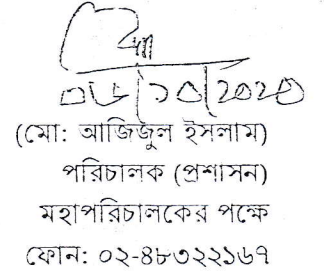 ০৮/১০/২০২০
(মো: আজিজুল ইসলাম)
পরিচালক (প্রশাসন)
মহাপরিচালকের পক্ষে
ফোন: ০২-৪৮৩২২১৬৭